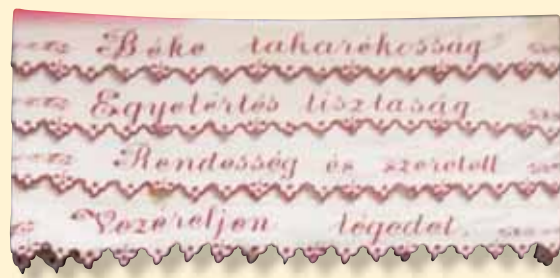 Béke takarékosság
Egyetértés tisztaság
Rendesség és szeretett
Vezéreljen tégedet.